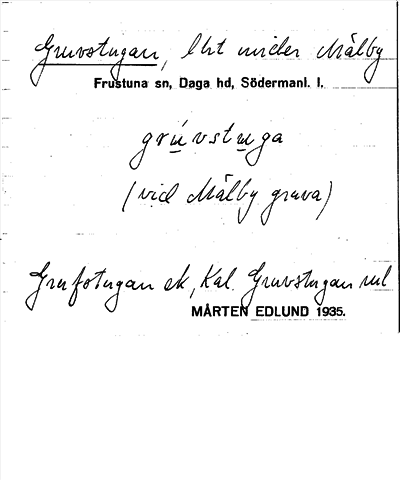 Gruvstugan, lht under Mälby
Frustuna sn, Daga hd, Södermanl. l.
grúvstuga
(vid Mälby gruva)
Grufstugan ek, Kal. Gruvstugan
MÅRTEN EDLUND 1935.